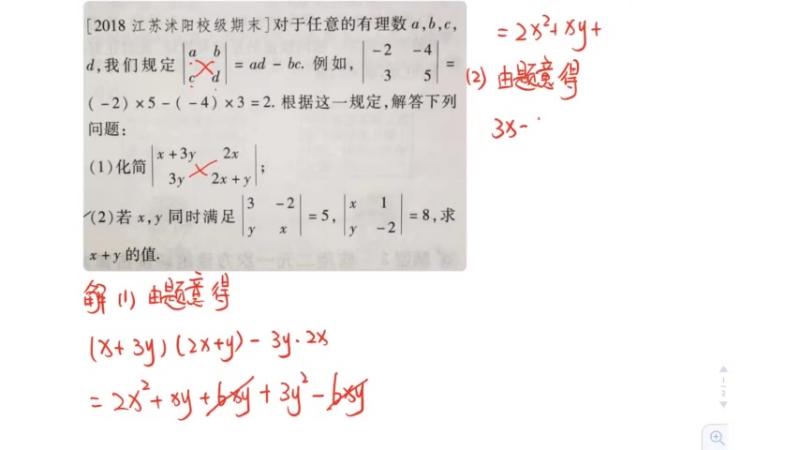 [2018 江苏沭阳校级期末]对于任意的有理数 a,b,c,
d,我们规定 |a b; c d| = ad - bc. 例如, |-2 -4; 3 5| =
(-2)×5-(-4)×3=2. 根据这一规定,解答下列
问题:
(1)化简 |x+3y 2x; 3y 2x+y|;
(2)若 x,y 同时满足 |3 -2; y x| =5, |x 1; y -2| =8,求
x+y 的值.
解 (1) 由题意得
(x+3y)(2x+y)-3y·2x
=2x²+xy+6xy+3y²-6xy
=2x²+xy+
(2) 由题意得
3x-
1
2